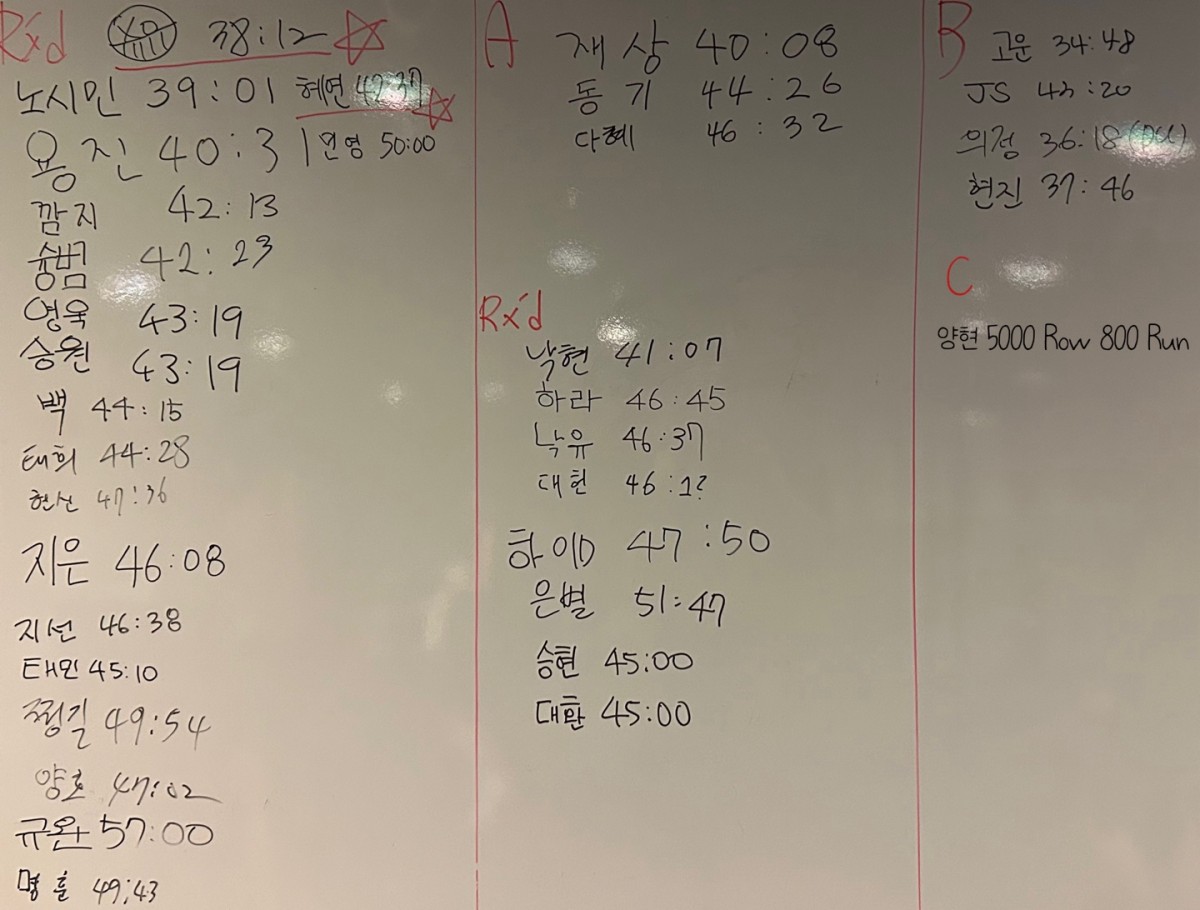 Rx'd 38:12
노시민 39:01 혜연 42:37
용진 40:31 민영 50:00
깜지 42:13
슝범 42:23
영욱 43:19
승원 43:19
백 44:15
태희 44:28
현신 47:36
지은 46:08
지선 46:38
태민 45:10
찡길 49:54
양호 47:02
규완 57:00
명훈 49:43
A
재상 40:08
동기 44:26
다혜 46:32
Rx'd
낙현 41:07
하라 46:45
낙유 46:37
대헌 46:1?
하이D 47:50
은별 51:47
승현 45:00
대환 45:00
B
고운 34:48
JS 43:20
의정 36:18
현진 37:46
C
양현 5000 Row 800 Run